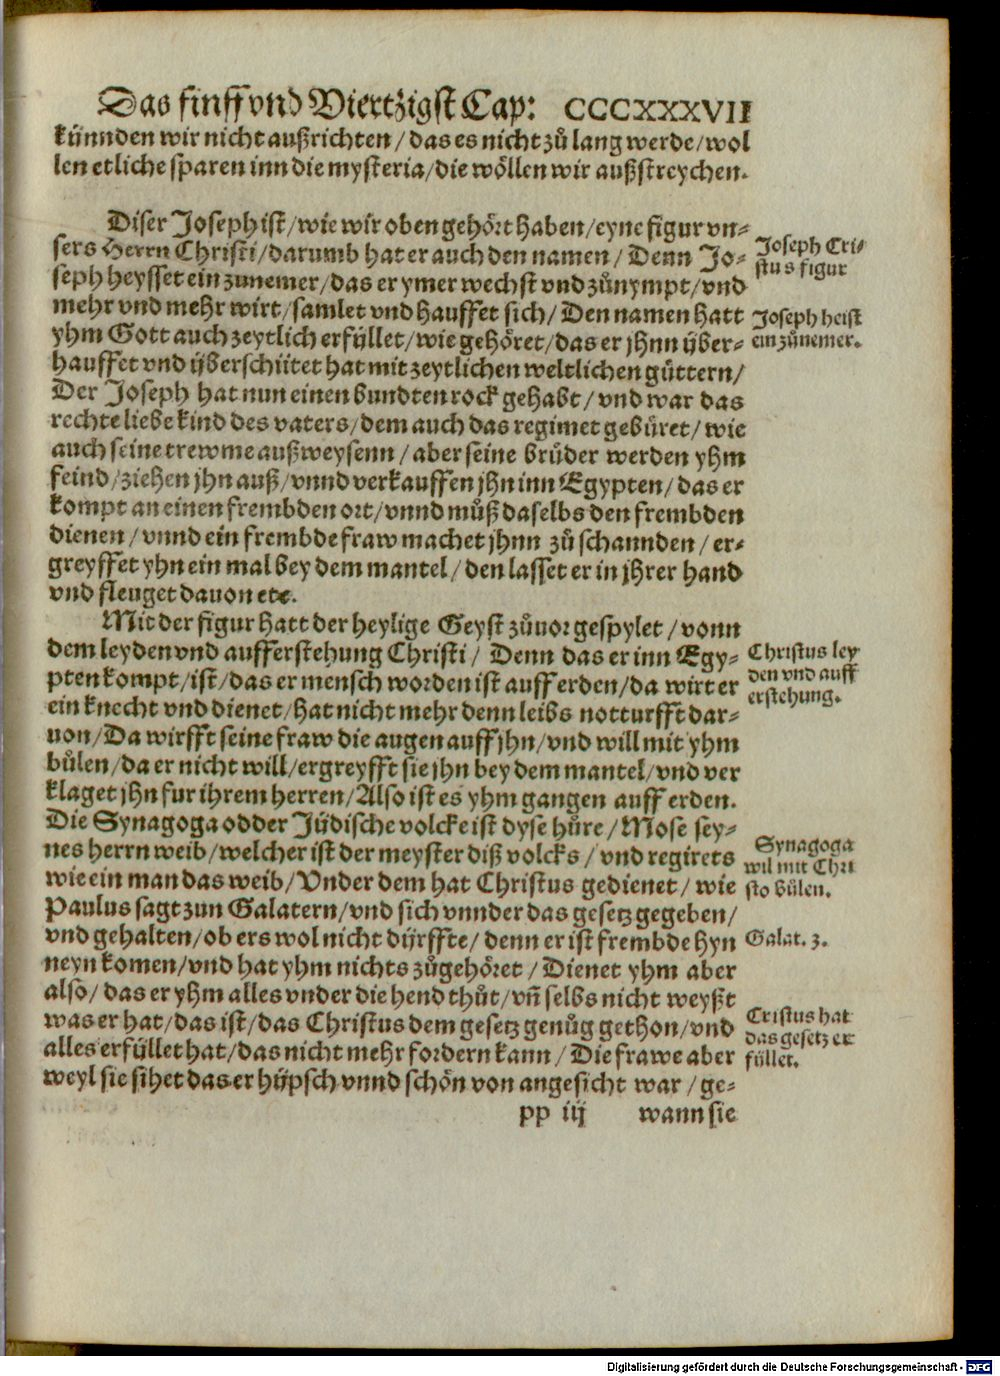 Das finff vnd Viertzigst Cap: CCCXXXVII
künnden wir nicht außrichten / das es nicht zů lang werde / wol
len etliche sparen inn die mysteria / die wöllen wir außstreychen.
Diser Joseph ist / wie wir oben gehört haben / eyne figur vn-
sers Herrn Christi / darumb hat er auch den namen / Denn Jo-
seph heysset ein zunemer / das er ymer wechst vnd zůnympt / vnd
mehr vnd mehr wirt / samlet vnd hauffet sich / Den namen hatt
yhm Gott auch zeytlich erfüllet / wie gehöret / das er jhnn über-
hauffet vnd überschütet hat mit zeytlichen weltlichen güttern /
Der Joseph hat nun einen bundten rock gehabt / vnd war das
rechte liebe kind des vaters / dem auch das regimet gebüret / wie
auch seine trewme außweysenn / aber seine brüder werden yhm
feind / ziehen jhn auß / vnnd verkauffen jhn inn Egypten / das er
kompt an einen frembden ort / vnnd můß daselbs den frembden
dienen / vnnd ein frembde fraw machet jhnn zů schannden / er-
greyffet yhn ein mal bey dem mantel / den lasset er in jhrer hand
vnd fleuget dauon etc.
Mit der figur hatt der heylige Geyst zůuor gespylet / vonn
dem leyden vnd aufferstehung Christi / Denn das er inn Egy-
pten kompt / ist / das er mensch worden ist auff erden / da wirt er
ein knecht vnd dienet / hat nicht mehr denn leibs notturfft dar-
uon / Da wirfft seine fraw die augen auff jhn / vnd will mit yhm
bůlen / da er nicht will / ergreyfft sie jhn bey dem mantel / vnd ver
klaget jhn fur ihrem herren / Also ist es yhm gangen auff erden.
Die Synagoga odder Jüdische volcke ist dyse hůre / Mose sey-
nes herrn weib / welcher ist der meyster diß volcks / vnd regirets
wie ein man das weib / Vnder dem hat Christus gedienet / wie
Paulus sagt zun Galatern / vnd sich vnnder das gesetz gegeben /
vnd gehalten / ob ers wol nicht dürffte / denn er ist frembde hyn
neyn komen / vnd hat yhm nichts zůgehöret / Dienet yhm aber
also / das er yhm alles vnder die hend thůt / vn̄ selbs nicht weyßt
was er hat / das ist / das Christus dem gesetz genůg gethon / vnd
alles erfüllet hat / das nicht mehr fordern kann / Die frawe aber
weyl sie sihet das er hüpsch vnnd schön von angesicht war / ge-
pp iij wann sie
Joseph Cri-
stus figur
Joseph heist
ein zůnemer.
Christus ley
den vnd auff
erstehung.
Synagoga
wil mit Chri
sto bůlen.
Galat. 3.
Cristus hat
das gesetz er
füllet.
Digitalisierung gefördert durch die Deutsche Forschungsgemeinschaft - DFG